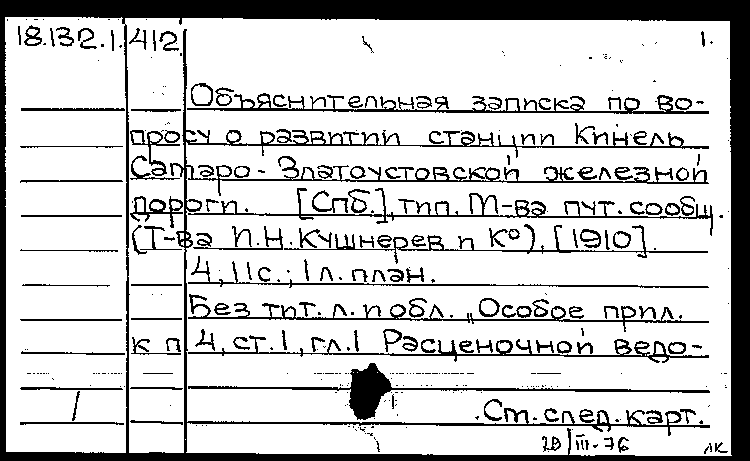 18.132.1. 412 1.
Объяснительная записка по во-
просу о развитии станции Кинель
Самаро-Златоустовской железной
дороги. [Спб.], тип. М-ва пут. сообщ.
(Т-ва И.Н. Кушнерев и К°), [1910].
4, 11 с.; 1 л. план.
Без тит. л. и обл. „Особое прил.
к п 4, ст. 1, гл. 1 Расценочной ведо-
1 .См. след. карт.
29/III-76 ЛК